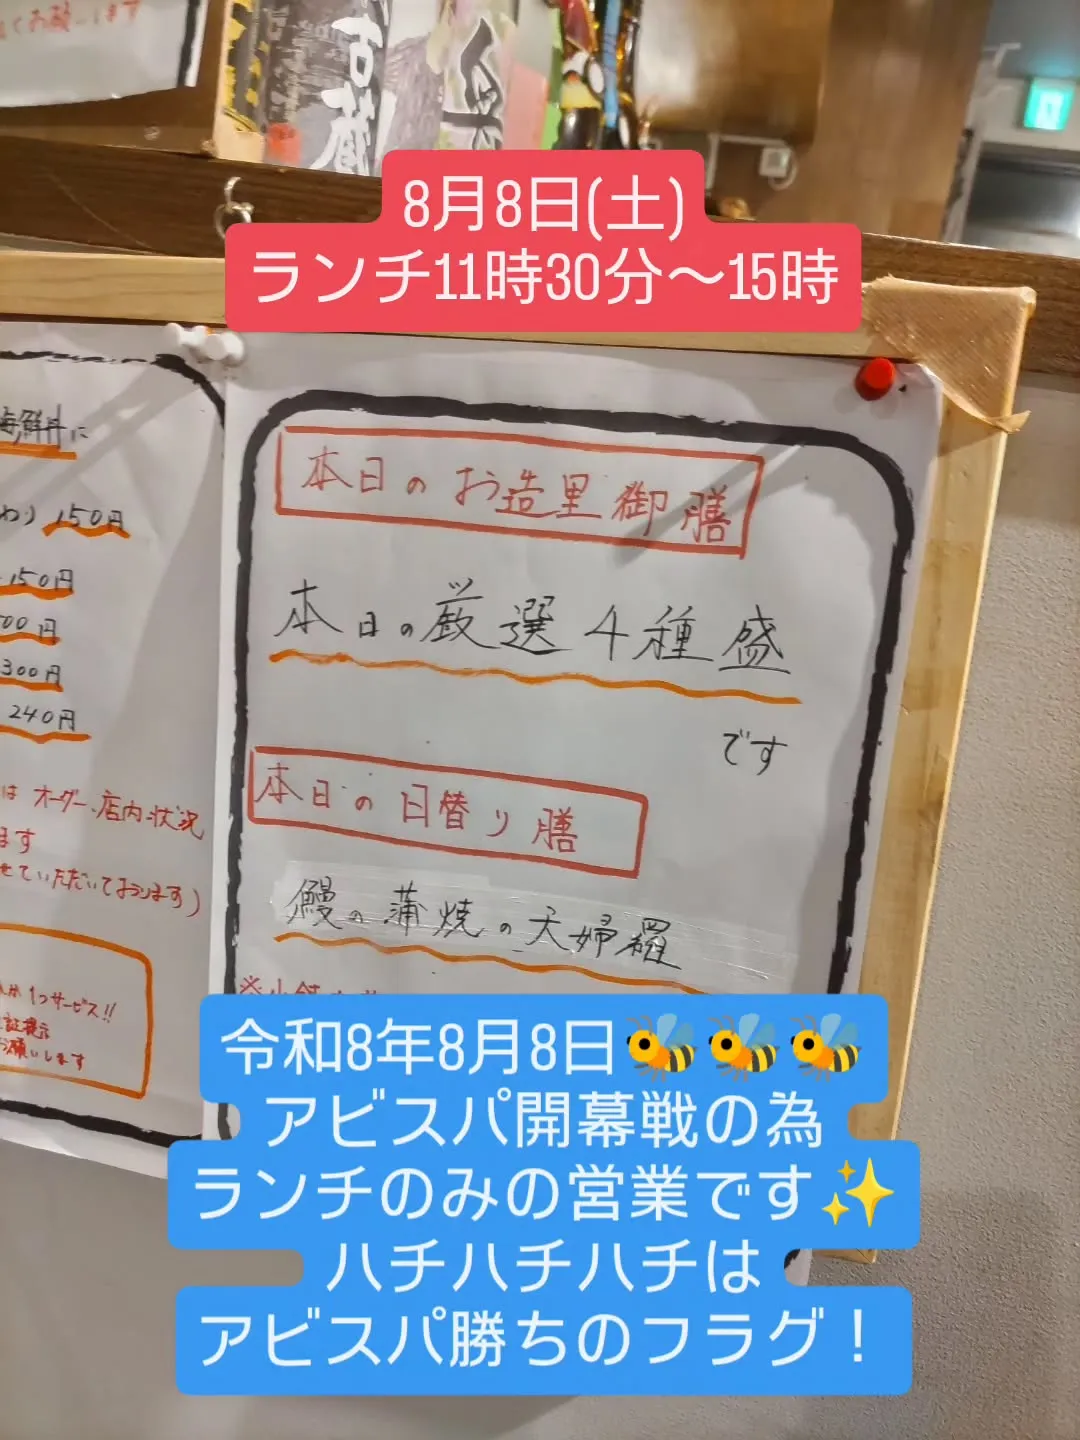 くお願いします
古蔵
8月8日(土)
ランチ11時30分～15時
海鮮丼に
わり 150円
150円
00円
300円
240円
は オーダー、店内状況
ます
せていただいております)
1つサービス!!
証提示
お願いします
本日のお造里御膳
本日の厳選4種盛
です
本日の日替り膳
鰻の蒲焼の天婦羅
令和8年8月8日🐝🐝🐝
アビスパ開幕戦の為
ランチのみの営業です✨
ハチハチハチは
アビスパ勝ちのフラグ！